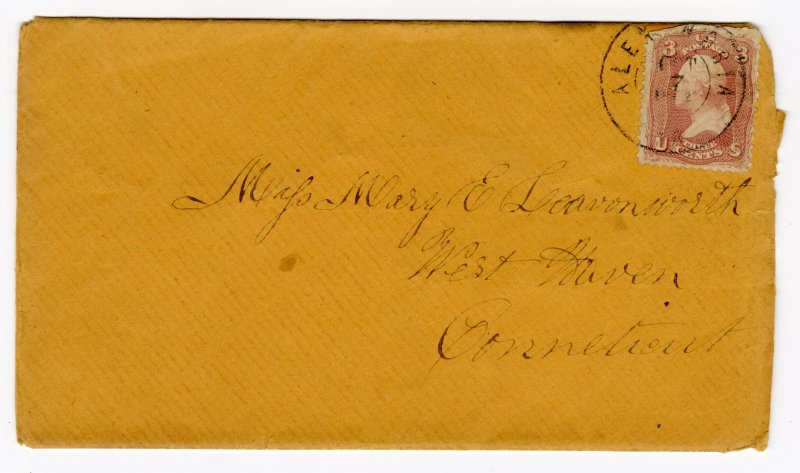 ALEXANDRIA
3 3
U.S. POSTAGE
U THREE CENTS S
Miss Mary E Leavonworth
West Haven
Conneticut